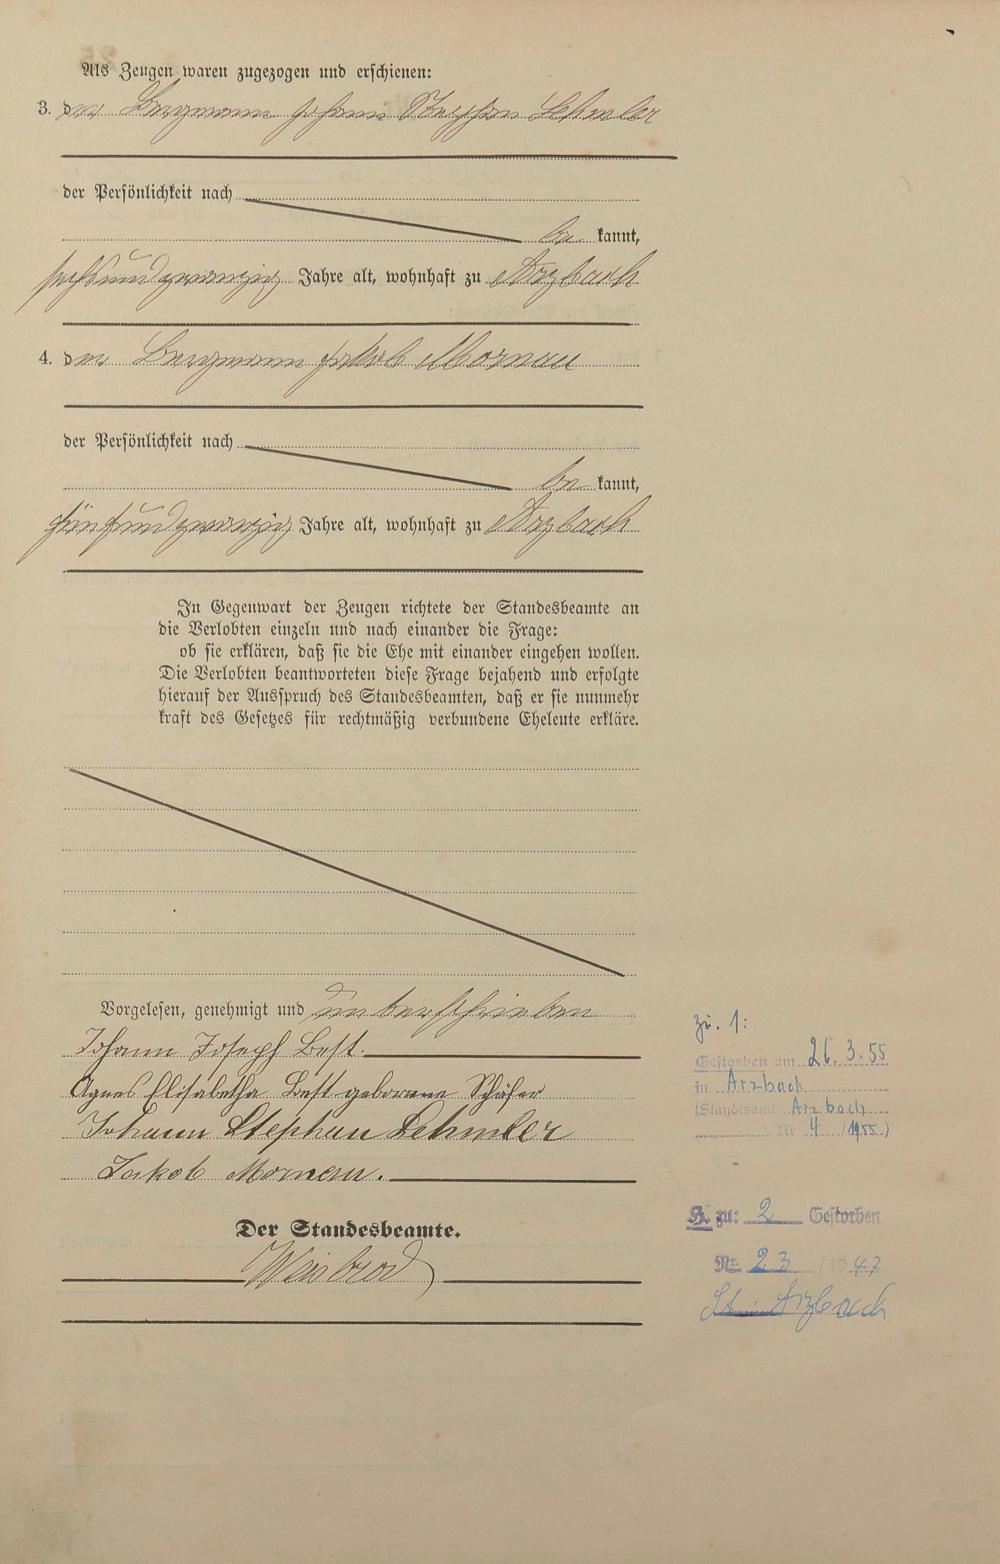 Als Zeugen waren zugezogen und erschienen:
3. der Bergmann Johann Stephan Lehmler
der Persönlichkeit nach
be kannt,
sechsundzwanzig Jahre alt, wohnhaft zu Arzbach
4. der Bergmann Jakob Mornau
der Persönlichkeit nach
be kannt,
fünfundzwanzig Jahre alt, wohnhaft zu Arzbach
In Gegenwart der Zeugen richtete der Standesbeamte an
die Verlobten einzeln und nach einander die Frage:
ob sie erklären, daß sie die Ehe mit einander eingehen wollen.
Die Verlobten beantworteten diese Frage bejahend und erfolgte
hierauf der Ausspruch des Standesbeamten, daß er sie nunmehr
kraft des Gesetzes für rechtmäßig verbundene Eheleute erkläre.
Vorgelesen, genehmigt und unterschrieben
Johann Joseph Best.
Agnes Elisabetha Best geborene Schäfer
Johann Stephan Lehmler
Jakob Mornau.
Der Standesbeamte.
Weisbrod
zu. 1:
Gestorben am 26.3.55
in Arzbach
(Standesamt Arzbach
Nr 4 /1955)
H. zu: 2 Gestorben
Nr. 23 /1947
St. Arzbach